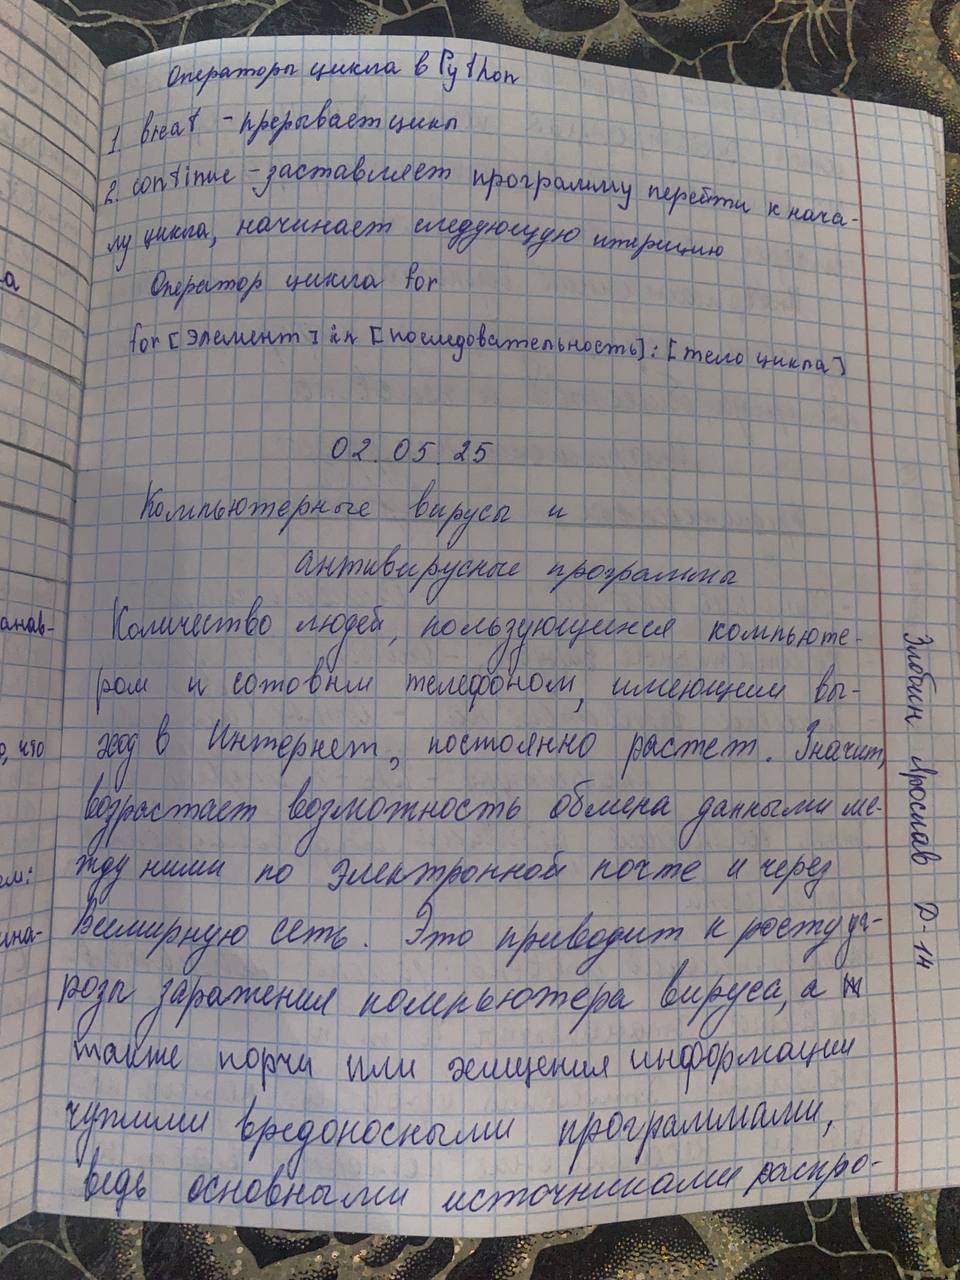 Операторы цикла в Python
1. breat - прерывает цикл
2. continue - заставляет программу перейти к нача-
лу цикла, начинает следующую итерицию
Оператор цикла for
for [элемент] in [последовательность]: [тело цикла]
02.05.25
Компьютерные вирусы и
антивирусные программы
Количество людей, пользующихся компьюте-
ром и сотовым телефоном, имеющим вы-
ход в Интернет, постоянно растет. Значит,
возрастает возможность обмена данными ме-
жду ними по электронной почте и через
Всемирную сеть. Это приводит к росту уг-
розы заражения компьютера вируса, а
также порчи или хищения информации
чужими вредоносными программами,
ведь основными источниками распро-
анав-
о, что
ом:
ина-
Злобин Ярослав Р-14